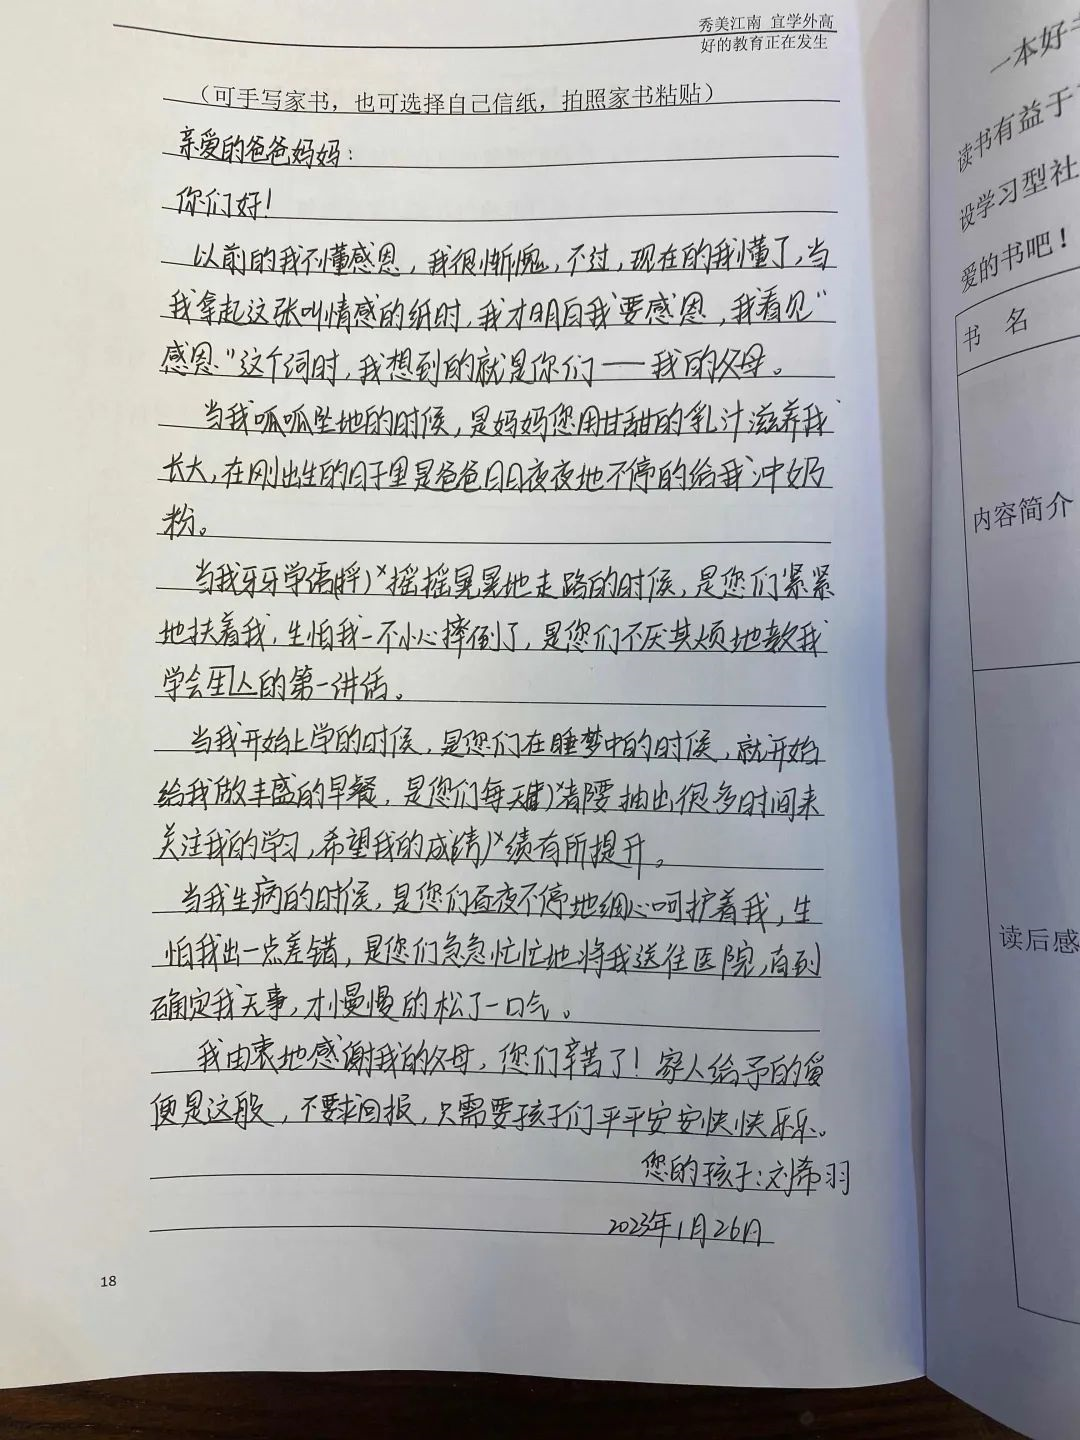 秀美江南 宜学外高
好的教育正在发生
（可手写家书，也可选择自己信纸，拍照家书粘贴）
亲爱的爸爸妈妈：
你们好！
以前的我不懂感恩，我很惭愧，不过，现在的我懂了，当
我拿起这张叫情感的纸时，我才明白我要感恩，我看见“
感恩”这个词时，我想到的就是你们——我的父母。
当我呱呱坠地的时候，是妈妈您用甘甜的乳汁滋养我
长大，在刚出生的日子里是爸爸日日夜夜地不停的给我冲奶
粉。
当我牙牙学语摇摇晃晃地走路的时候，是您们紧紧
地扶着我，生怕我一不小心摔倒了，是您们不厌其烦地教我
学会的第一讲话。
当我开始上学的时候，是您们在睡梦中的时候，就开始
给我做丰盛的早餐，是您们每天都要抽出很多时间来
关注我的学习，希望我的成绩有所提升。
当我生病的时候，是您们昼夜不停地细心呵护着我，生
怕我出一点差错，是您们急急忙忙地将我送往医院，直到
确定我无事，才慢慢的松了一口气。
我由衷地感谢我的父母，您们辛苦了！家人给予的爱
便是这般，不要求回报，只需要孩子们平平安安快快乐乐。
您的孩子：刘希羽
2023年1月26日
18
一本好
读书有益于
设学习型社
爱的书吧！
书 名
内容简介
读后感